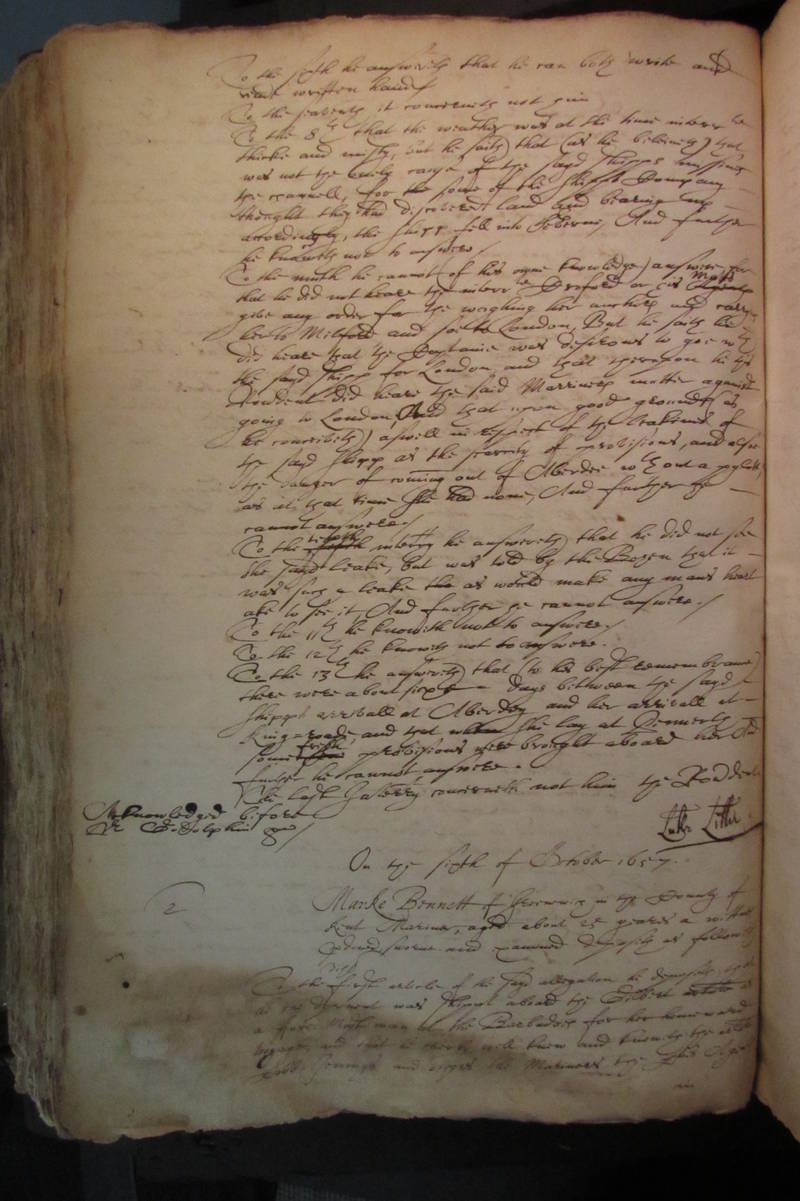 To the sixth he answereth that he can both write and
reade written hand
To the seaventh it concerneth not him
To the 8th that the weather was at the time interr te
thicke and misty, but he saith that (as he beleiveth) that
was not the onely cause of the sayd shipps missing
the channell, for the some of the shipps Company
thought they had discovered land and bearing up
accordingly, the shipp fell into Severne, And further
he knoweth not to answere
To the ninth he cannot (of his owne knowledge) answere for
that he did not heare the interr te or his Mate
give any order for the weighing her anchors and carry
her to Milford and soe to London, But he saith he
did heare that the Captaine was desirous to goe with
the sayd shipp for London, and that thereupon he this
Rendent did heare the said Marriners mutter against
going to London, And that upon good grounds as
he conceiveth) aswell in respect of the leakines of
the sayd shipp as the scarcity of provisions, and alsoe
the danger of coming out of Aberdee without a pylott,
as at that time she had none, And further he
cannot answere
To the tenth interry he answereth that he did not see
the sayd leake, but was told by the Bosen that it
was such a leake the as would make any mans heart
ake to see it, And further he cannot answere.
To the 11th he knoweth not to answere.
To the 12th he knoweth not to answere.
To the 13th he answereth that (to his best remembrance)
there were about sixe days betweene the sayd
shipps arrivall at Aberdey and her arrivall at
King-roade and that when she lay at
some fresh provisions were brought aboard her And
further he cannot answere.
The last Interry concerneth not him the Rendent
Acknowledged before
Luke Little
On the sixth of October 1657.
2
Marke Bennett of Greenwich in the County of
Kent Mariner, aged about 25 yeares a witnes
sworne and examined deposeth as followeth
To the first article of the sayd allegation he deposeth, that
he this deponent was shipped aboard the Gilbert
a fore Mast man at the Barbados for her homeward
voyage, and that he therby well knew and knoweth the
and the Mariners the